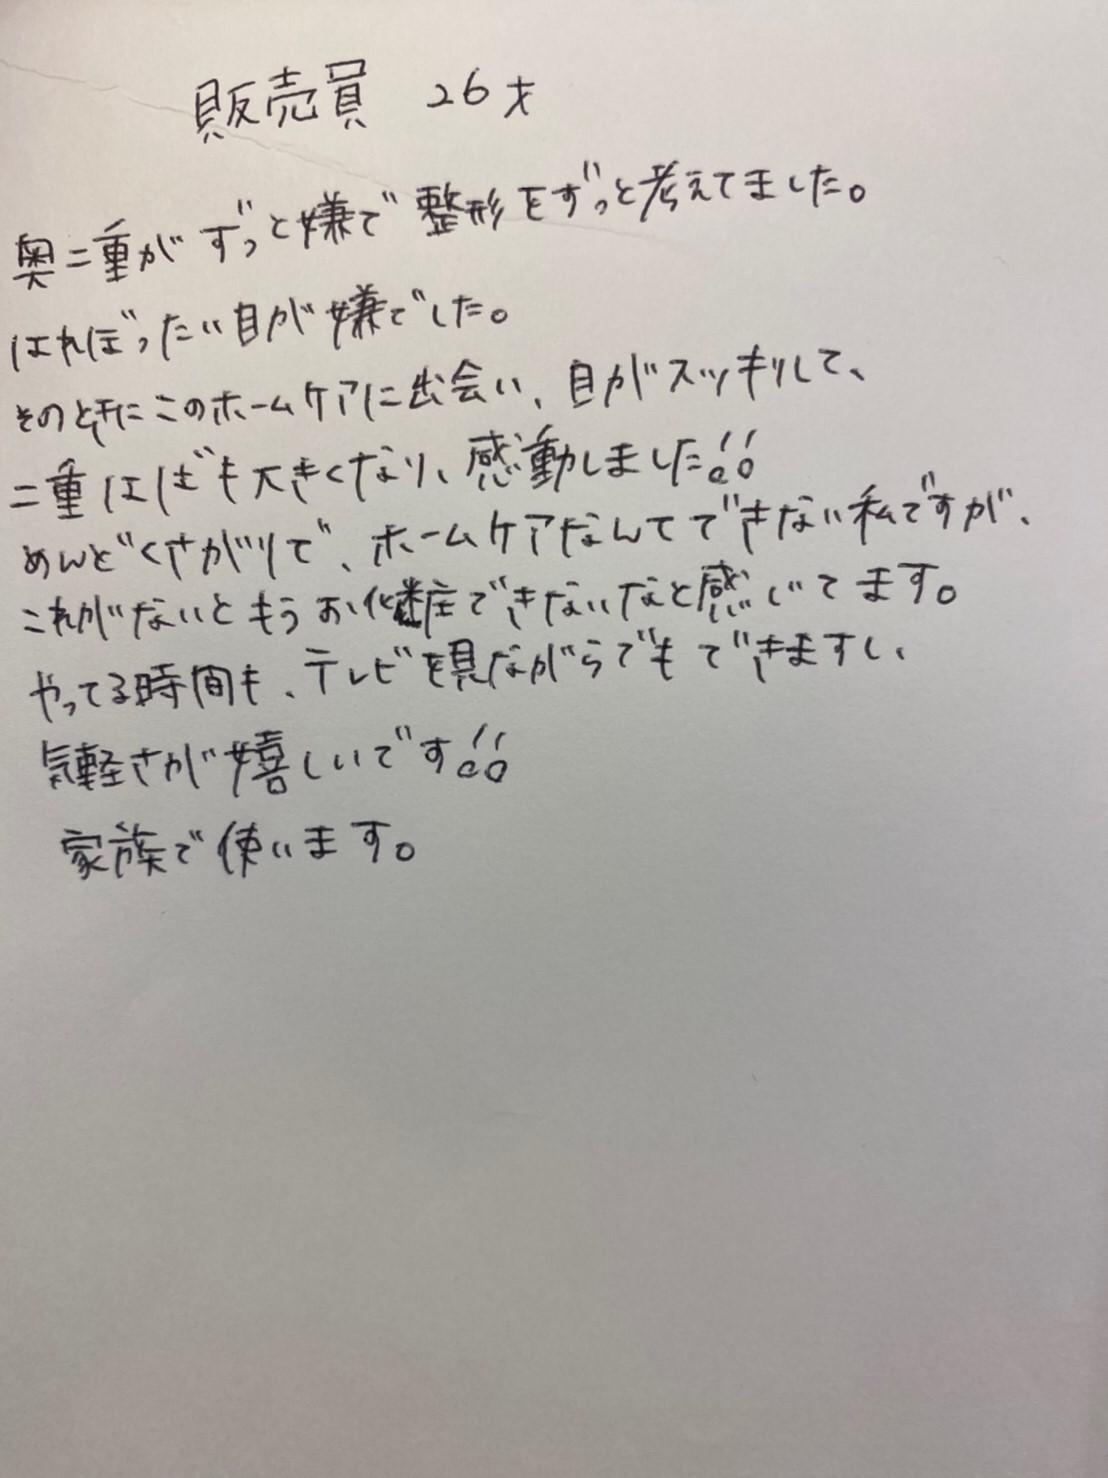 販売員 26才
奥二重がずっと嫌で整形をずっと考えてました。
はれぼったい目が嫌でした。
そのときにこのホームケアに出会い、目がスッキリして、
二重はばも大きくなり、感動しました!!
めんどくさがりで、ホームケアなんてできない私ですが、
これがないともうお化粧できないなと感じてます。
やってる時間も、テレビを見ながらでもできますし、
気軽さが嬉しいです!!
家族で使います。